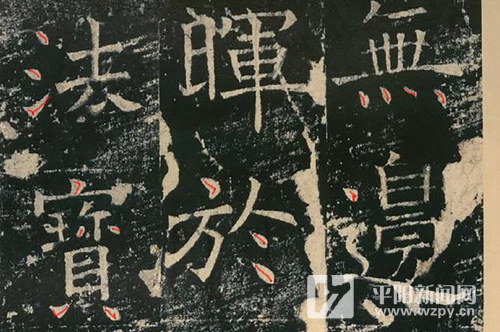 無邊
暉於
法寶
平阳新闻网
www.wzpy.cn